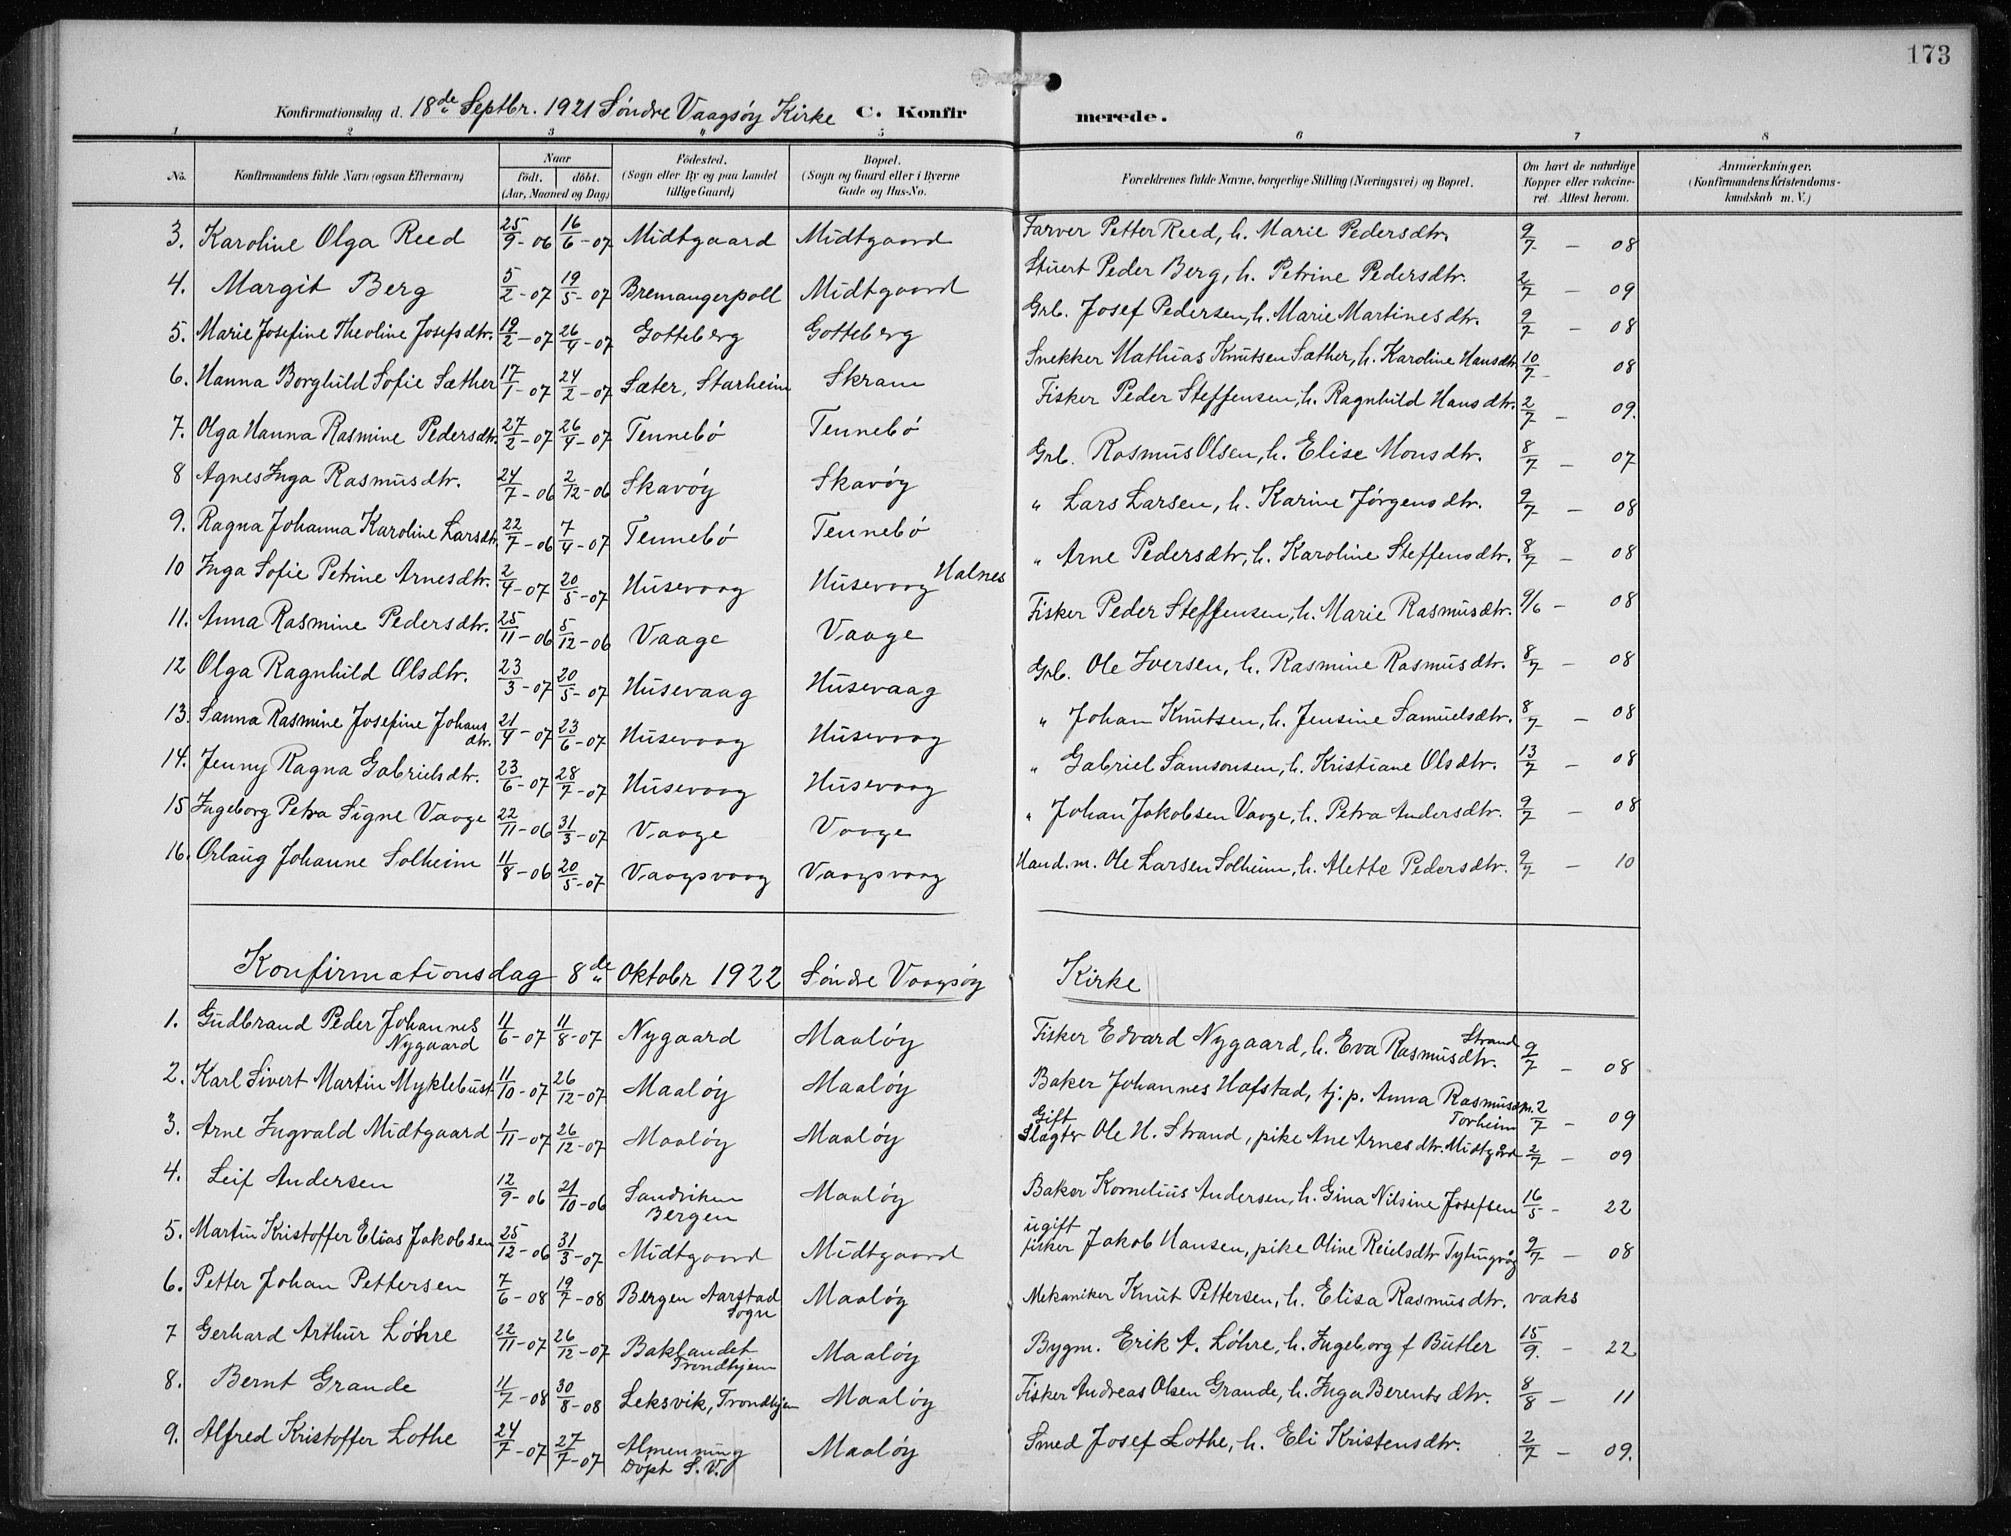 173
Konfirmationsdag d. 18de Septbr. 1921 Søndre Vaagsøy Kirke C. Konfirmerede.
1 2 3 4 5 6 7 8
No. Konfirmandens fulde Navn (ogsaa Efternavn) Naar født. døbt. (Aar, Maaned og Dag) Fødested. (Sogn eller By og paa Landet tillige Gaard) Bopæl. (Sogn og Gaard eller i Byerne Gade og Hus-No. Forældrenes fulde Navne, borgerlige Stilling (Næringsvei) og Bopæl. Om havt de naturlige Kopper eller vakcineret. Attest herom. Anmærkninger. (Konfirmandens Kristendomskundskab m. V.)
3. Karoline Olga Reed 25/9-06 16/6-07 Midtgaard Midtgaard Farver Petter Reed, h. Marie Pedersdtr. 9/7 - 08
4. Margit Berg 5/2-07 19/5-07 Bremangerpoll Midtgaard Stuert Peder Berg, h. Petrine Pedersdtr. 2/7 - 09
5. Marie Josefine Theoline Josefsdtr. 19/2-07 26/4-07 Gotteberg Gotteberg Grb. Josef Pedersen, h. Marie Martinesdtr. 9/7 - 08
6. Hanna Borghild Sofie Sæther 17/1-07 24/2-07 Sæter, Starheim Skram Snekker Mathias Knutsen Sæther, h. Karoline Hansdtr. 10/7 - 08
7. Olga Hanna Rasmine Pedersdtr. 27/2-07 26/4-07 Tennebø Tennebø Fisker Peder Steffensen, h. Ragnhild Hansdtr. 2/7 - 09.
8 Agnes Inga Rasmusdtr. 24/7-06 2/12-06 Skavøy Skavøy Grb. Rasmus Olsen, h. Elise Monsdtr. 8/7 - 07
9. Ragna Johanna Karoline Larsdtr. 22/7-06 7/4-07 Tennebø Tennebø " Lars Larsen, h. Karine Jørgensdtr. 9/7 - 08
10 Inga Sofie Petrine Arnesdtr. 2/4-07 20/5-07 Husevaag Husevaag Halnes " Arne Pedersdtr, h. Karoline Steffensdtr. 8/7 - 08
11. Anna Rasmine Pedersdtr. 25/11-06 5/12-06 Vaage Vaage Fisker Peder Steffensen, h. Marie Rasmusdtr. 9/6 - 08
12 Olga Ragnhild Olsdtr. 23/3-07 20/5-07 Husevaag Husevaag Grb. Ole Iversen, h. Rasmine Rasmusdtr. 8/7 - 08
13. Sanna Rasmine Josefine Johansdtr. 21/4-07 23/6-07 Husevaag Husevaag " Johan Knutsen, h. Jensine Samuelsdtr. 8/7 - 08
14. Jenny Ragna Gabrielsdtr. 23/6-07 28/7-07 Husevaag Husevaag " Gabriel Samsonsen, h. Kristiane Olsdtr. 13/7 - 08
15 Ingeborg Petra Signe Vaage 22/11-06 31/3-07 Vaage Vaage " Johan Jakobsen Vaage, h. Petra Andersdtr. 9/7 - 08
16. Orlaug Johanne Solheim 11/8-06 20/5-07 Vaagsvaag Vaagsvaag Hand.m. Ole Larsen Solheim, h. Alette Pedersdtr. 9/7 - 10
Konfirmationsdag 8de Oktobr 1922 Søndre Vaagsøy Kirke
1. Gudbrand Peder Johannes Nygaard 11/6-07 11/8-07 Nygaard Maaløy Fisker Edvard Nygaard, h. Eva Rasmusdtr. Strand 9/7 - 08
2. Karl Sivert Martin Myklebust 11/10-07 26/12-07 Maaløy Maaløy Baker Johannes Hafstad, tj.p. Anna Rasmusdtr. Torheim 2/7 - 09
3. Arne Ingvald Midtgaard 1/11-07 26/12-07 Maaløy Maaløy Gift Slagter Ole H. Strand, pike Ane Arnesdtr. Midtgård 2/7 - 09
4. Leif Andersen 12/9-06 21/10-06 Sandviken Bergen Maaløy Baker Kornelius Andersen, h. Gina Nilsine Josefsen 16/5 - 22
5. Martin Kristoffer Elias Jakobsen 25/12-06 31/3-07 Midtgaard Midtgaard ugift fisker Jakob Hansen, pike Oline Reielsdtr Tytingvåg 9/7 - 08
6. Petter Johan Pettersen 7/6-08 19/7-08 Bergen Aarstad Sogn Maaløy Mekaniker Knut Pettersen, h. Elisa Rasmusdtr. vaks
7 Gerhard Arthur Løhre 22/11-07 26/12-07 Baklandet Trondhjem Maaløy Bygm. Erik A. Løhre, h. Ingeborg f Butler 15/9. - 22
8. Bernt Grande 11/7-08 30/8-08 Leksvik, Trondhjem Maaløy Fisker Andreas Olsen Grande, h. Inga Berentsdtr. 8/8 - 11
9. Alfred Kristoffer Lothe 24/7-07 27/7-07 Almenning Døpt S.V. Maaløy Smed Josef Lothe, h. Eli Kristensdtr. 2/7 - 09.